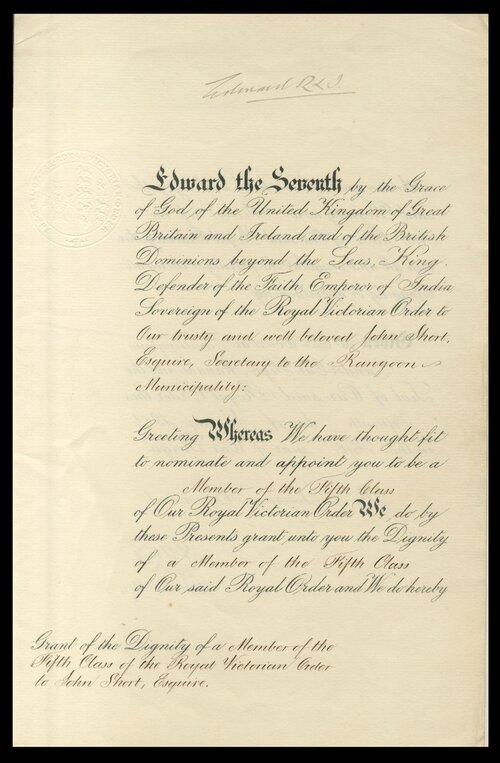 Edward R & I.
Edward the Seventh by the Grace
of God, of the United Kingdom of Great
Britain and Ireland, and of the British
Dominions beyond the Seas, King,
Defender of the Faith, Emperor of India
Sovereign of the Royal Victorian Order to
Our trusty and well beloved John Short,
Esquire, Secretary to the Rangoon
Municipality:
Greeting Whereas We have thought fit
to nominate and appoint you to be a
Member of the Fifth Class
of Our Royal Victorian Order We do by
these Presents grant unto you the Dignity
of a Member of the Fifth Class
of Our said Royal Order and We do hereby
Grant of the Dignity of a Member of the
Fifth Class of the Royal Victorian Order
to John Short, Esquire.